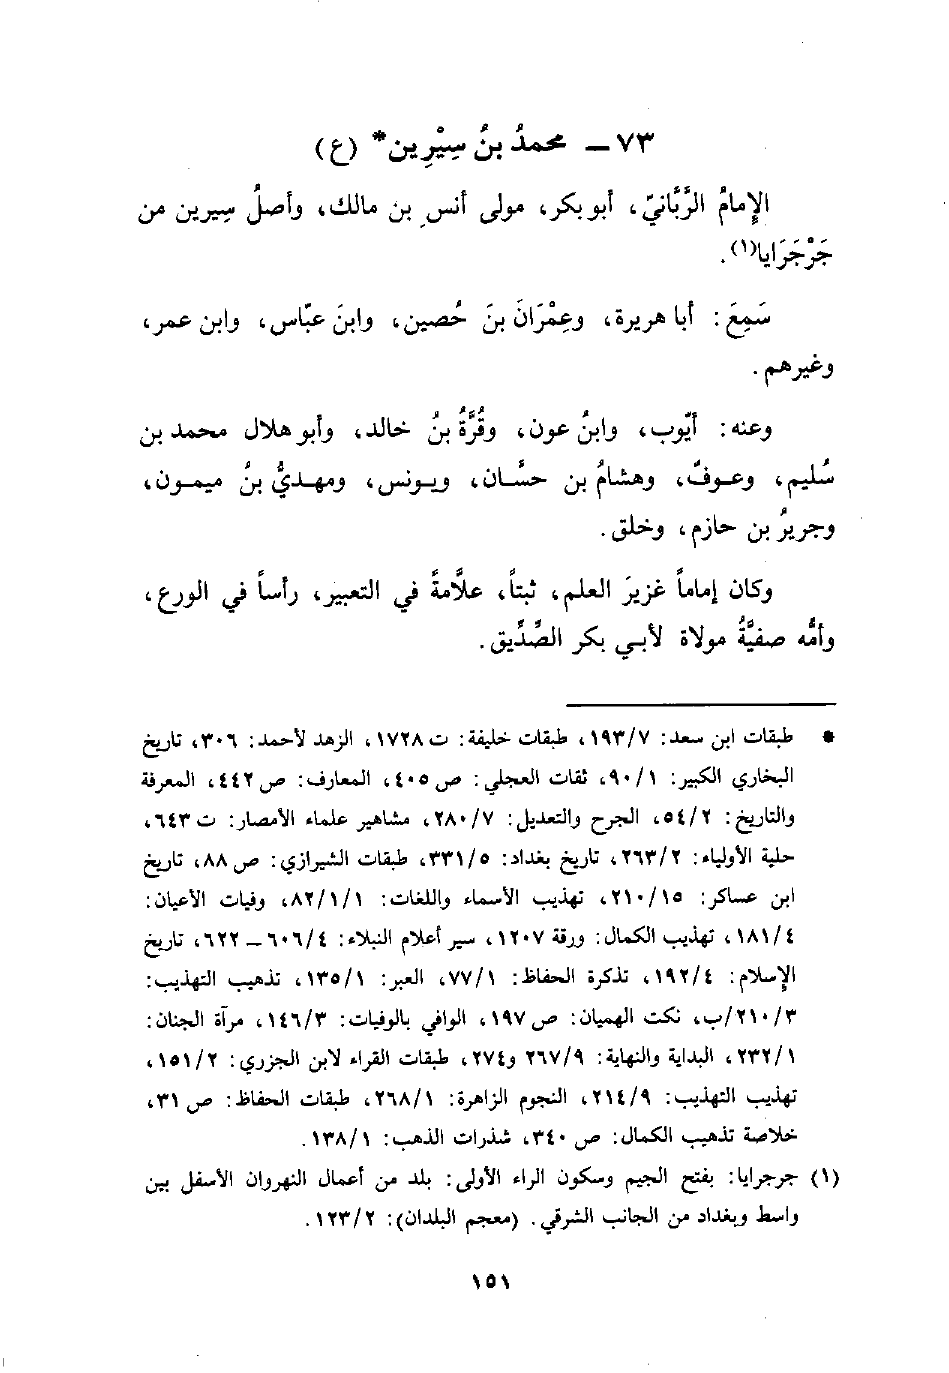 ٧٣ – محمدُ بنُ سِيْرِين* (ع)
الإمامُ الرَّبَّانيّ، أبو بكر، مولى أنسِ بن مالك، وأصلُ سِيرين من
جَرْجَرَايا(١).
سَمِعَ: أبا هريرة، وعِمْرَانَ بنَ حُصين، وابنَ عبّاس، وابن عمر،
وغيرهم.
وعنه: أيّوب، وابنُ عون، وقُرَّةُ بنُ خالد، وأبو هلال محمد بن
سُليم، وعوفٌ، وهشامُ بن حسَّان، ويونس، ومهديُّ بنُ ميمون،
وجريرُ بن حازم، وخلق.
وكان إماماً غزيرَ العلم، ثبتاً، علاَّمةً في التعبير، رأساً في الورع،
وأمُّه صفيَّةُ مولاة لأبي بكر الصِّدِّيق.
* طبقات ابن سعد: ١٩٣/٧، طبقات خليفة: ت ١٧٢٨، الزهد لأحمد: ٣٠٦، تاريخ
البخاري الكبير: ٩٠/١، ثقات العجلي: ص ٤٠٥، المعارف: ص ٤٤٢، المعرفة
والتاريخ: ٥٤/٢، الجرح والتعديل: ٢٨٠/٧، مشاهير علماء الأمصار: ت ٦٤٣،
حلية الأولياء: ٢٦٣/٢، تاريخ بغداد: ٣٣١/٥، طبقات الشيرازي: ص ٨٨، تاريخ
ابن عساكر: ٢١٠/١٥، تهذيب الأسماء واللغات: ٨٢/١/١، وفيات الأعيان:
١٨١/٤، تهذيب الكمال: ورقة ١٢٠٧، سير أعلام النبلاء: ٦٠٦/٤ – ٦٢٢، تاريخ
الإسلام: ١٩٢/٤، تذكرة الحفاظ: ٧٧/١، العبر: ١٣٥/١، تذهيب التهذيب:
٢١٠/٣/ب، نكت الهميان: ص ١٩٧، الوافي بالوفيات: ١٤٦/٣، مرآة الجنان:
٢٣٢/١، البداية والنهاية: ٢٦٧/٩ و٢٧٤، طبقات القراء لابن الجزري: ١٥١/٢،
تهذيب التهذيب: ٢١٤/٩، النجوم الزاهرة: ٢٦٨/١، طبقات الحفاظ: ص ٣١،
خلاصة تذهيب الكمال: ص ٣٤٠، شذرات الذهب: ١٣٨/١.
(١) جرجرايا: بفتح الجيم وسكون الراء الأولى: بلد من أعمال النهروان الأسفل بين
واسط وبغداد من الجانب الشرقي. (معجم البلدان): ١٢٣/٢.
١٥١